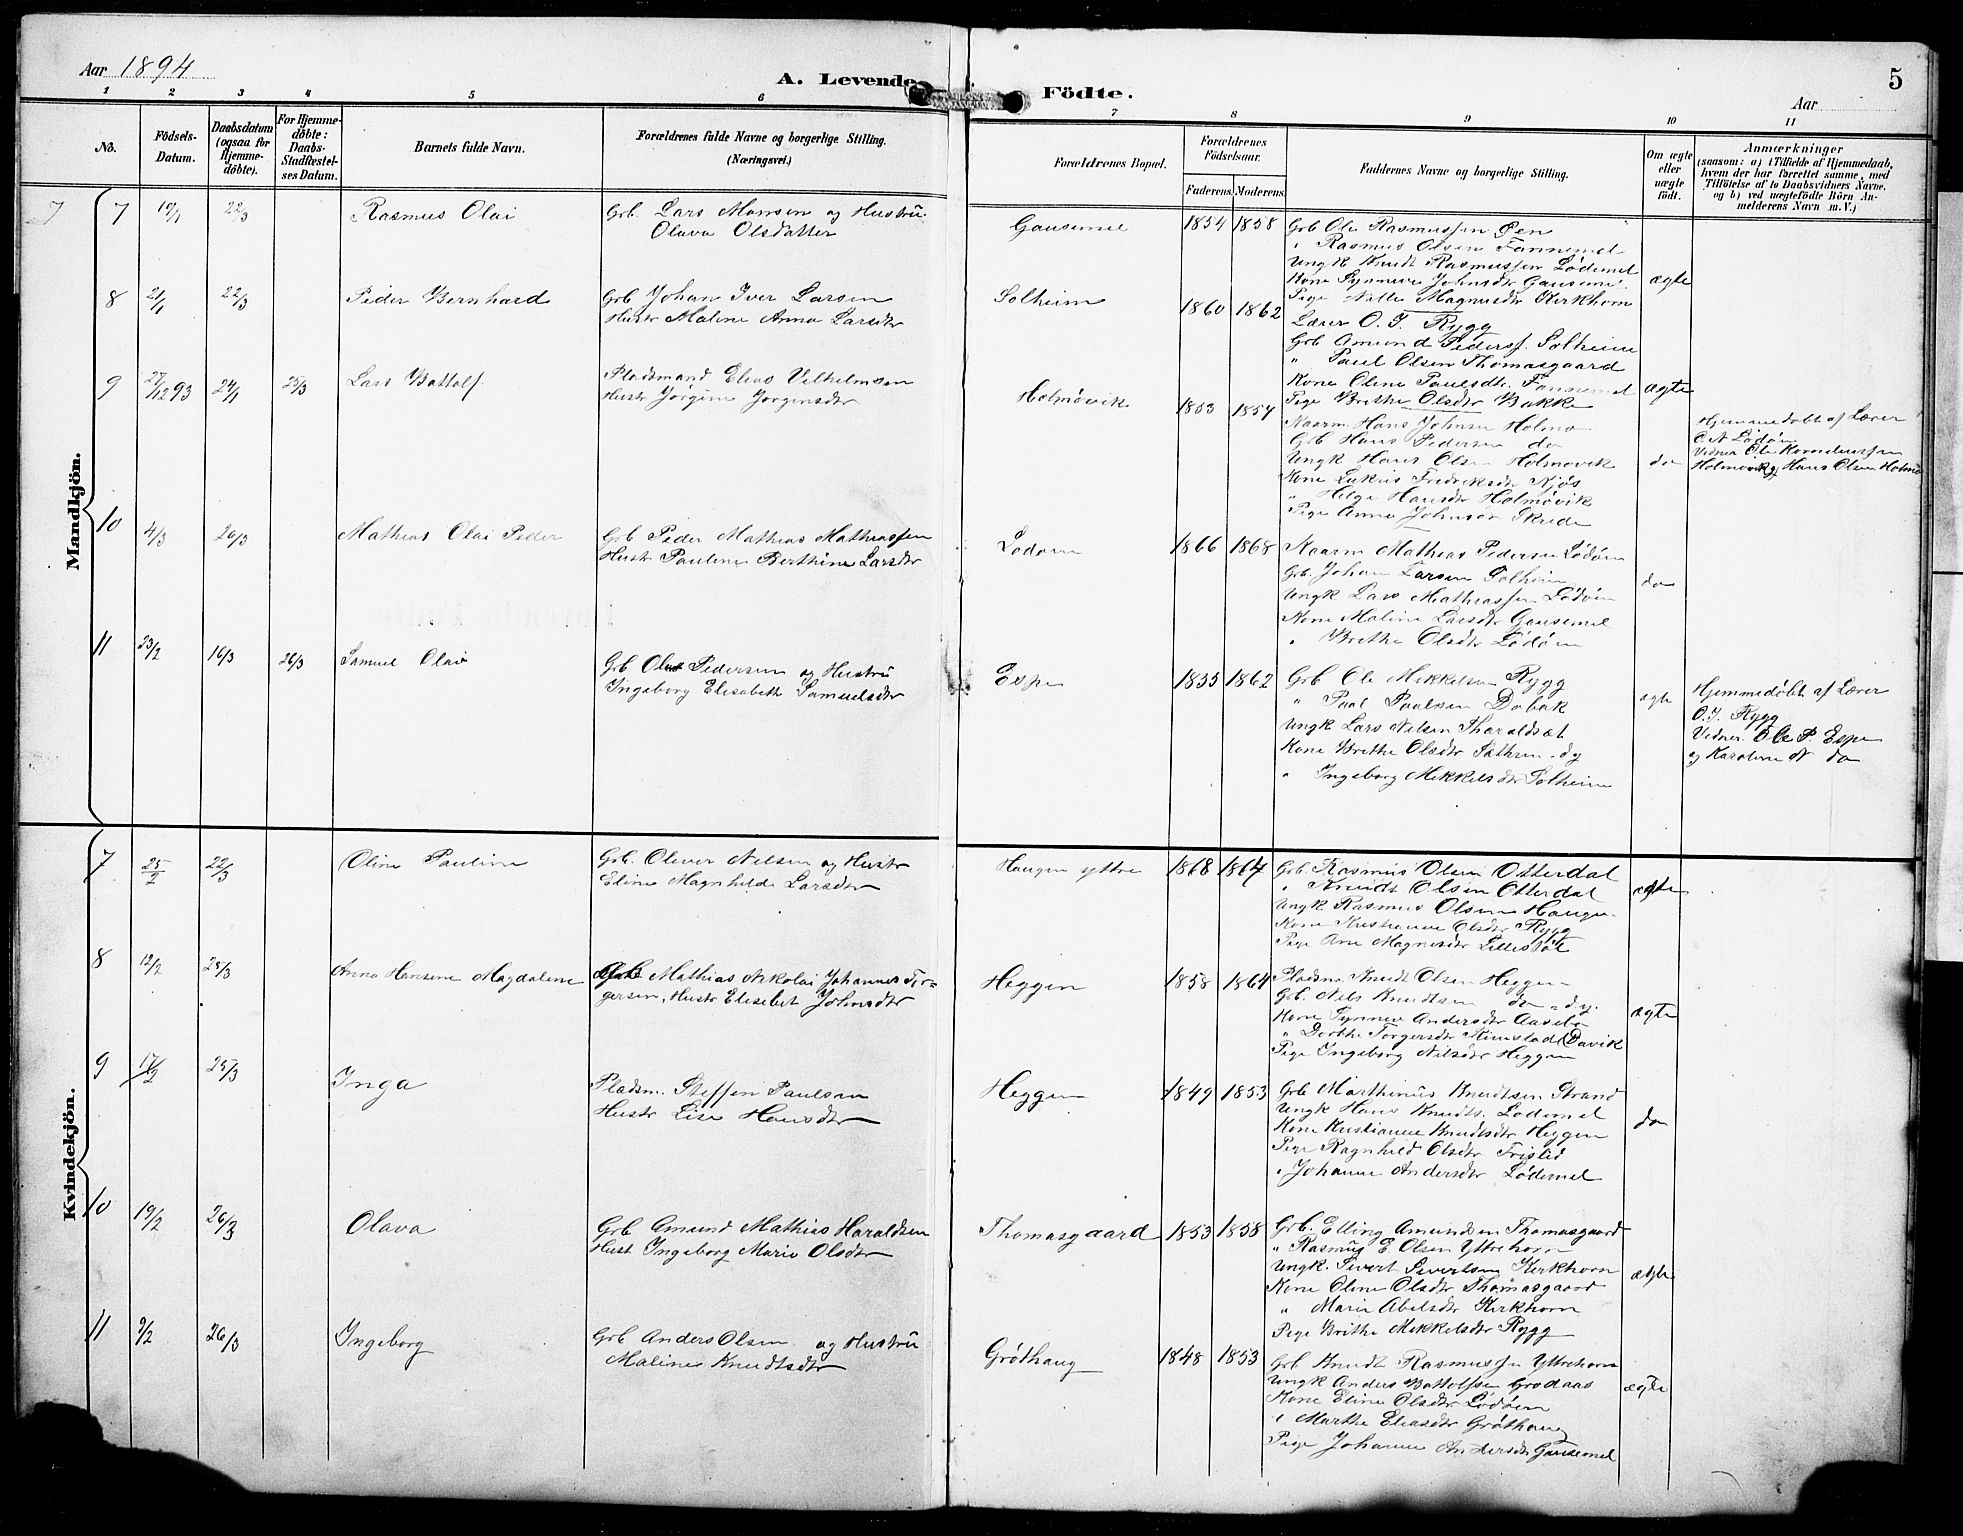 Aar 1894
A. Levende
Födte.
5
Aar
1 2 3 4 5 6 7 8 9 10 11
No.
Födsels-Datum.
Daabsdatum (ogsaa for Hjemme-döbte).
For Hjemme-döbte: Daabs-Stadfæstel-ses Datum.
Barnets fulde Navn.
Forældrenes fulde Navne og borgerlige Stilling.
(Næringsvei.)
Forældrenes Bopæl.
Forældrenes Födselsaar.
Faderens. Moderens.
Faddernes Navne og borgerlige Stilling.
Om ægte eller uægte födt.
Anmærkninger
(saasom: a) i Tilfælde af Hjemmedaab,
hvem der har forrettet samme, med
Tilföielse af to Daabsvidners Navne.
og b) ved uægtefödte Börn An-
melderens Navn m. V.)
Mandkjön.
7 7 19/1 22/3 Rasmus Olai
Grb. Lars Monsen og Hustru
Olava Olsdatter
Gausemel 1854 1858
Grb Ole Rasmussen Øen
" Rasmus Olsen Fannemel
Ungk Knudt Rasmussen Lødemel
Kone Synneve Johnsdtr Gausemel
Pige Nille Magnusdtr Kirkhorn
ægte
8 21/1 22/3 Peder Bernhard
Grb Johan Iver Larsen
Hustr Maline Anna Larsdtr
Solheim 1860 1862
Lærer O. J. Rygg
Grb Amund Peders. Solheim
" Paul Olsen Thomasgaard
Kone Oline Paulsdtr. Fannemel
Pige Brithe Olsdtr Bakke
ægte
9 27/12 93 24/1 25/3 Lars Battolf
Pladsmand Elias Vilhelmsen
Hustr Jørgine Jørgensdtr
Holmøvik 1853 1854
Kaarm. Hans Johnsen Holmø
Grb Hans Pedersen do
Ungk Hans Olsen Holmøvik
Kone Lukris Fredriksdtr Kjøs
" Helge Hansdtr Holmøvik
Pige Anna Johnsdr
do
Hjemmedøbt af Lærer
O. A Lødøen
Vidner Ole
Holmøvik og Hans Olsen Holmø
10 4/3 26/3 Mathias Olai Peder
Grb Peder Mathias Mathiassen
Hustr Pauline Berthine Larsdtr
Lødøen 1866 1868
Kaarm Mathias Pedersen Lødøen
Grb. Johan Larsen Solheim
Ungk Lars Mathiassen Lødøen
Kone Maline Larsdtr Gausemel
" Brithe Olsdtr Lødøen
do
11 23/2 16/3 26/3 Samuel Olai
Grb Ole Pedersen og Hustru
Ingeborg Elisabeth Samuelsdtr
Espe 1835 1862
Grb Ole Mikkelsen Rygg
" Paul Paulsen Dobak
Ungk Lars Nilsen Tharaldsæt
Kone Brithe Olsdtr Sæthren - dy
" Ingeborg Mikkelsdtr Solheim
ægte
Hjemmedøbt af Lærer
O. J. Rygg
Vidner. Ole P. Espe
og Karoline N do
Kvindekjön.
7 25/2 22/3 Oline Pauline
Grb. Oliver Nilsen og Hustr
Eline Magnhilde Larsdtr
Haugen yttre 1868 1864
Grb. Rasmus Olsen Otterdal
" Knudt Olsen Otterdal
Ungk. Rasmus Olsen Haugen
Kone Kristianne Olsdtr Rygg
Pige Ane Magnusdtr Lillestøl
ægte
8 12/2 25/3 Anna Hansine Magdaline
Grb Mathias Nikolai Johannes Tor-
gersen, Hustr Elisebet Johnsdtr
Heggen 1858 1864
Pladsm. Knudt Olsen Heggen
Grb. Nils Knudtsen do - dy.
Kone Synneve Andersdtr Aasebø
" Dorthe Torgersdtr Rimstad (Davik
Pige Ingeborg Nilsdtr Heggen
ægte
9 17/2 25/3 Inga
Pladsm. Steffen Paulsen
Hustr Lise Hansdtr
Heggen 1849 1853
Grb Marthinus Knudtsen Strand
Ungk Hans Knudts. Lødemel
Kone Kristianne Knudtsdtr Heggen
Pige Ragnhild Olsdtr Frislid
" Johanne Andersdtr Lødemel
do
10 19/2 26/3 Olava
Grb Amund Mathias Haraldsen
Hust Ingeborg Marie Olsdtr
Thomasgaard 1853 1858
Grb. Elling Amundsen Thomasgaard
" Rasmus E. Olsen Yttrehorn
Ungk. Sivert Sivertsen Kirkhorn
Kone Oline Olsdtr Thomasgaard
" Marie Abelsdtr Kirkhorn
Pige Brithe Mikkelsdtr Rygg
ægte
11 9/2 26/3 Ingeborg
Grb Anders Olsen og Hustru
Maline Knudtsdtr
Grøthaug 1848 1853
Grb Knudt Rasmussen Yttrehorn
Ungk Anders Battolfsen Grodaas
Kone Eline Olsdtr Lødøen
" Marthe Eliasdtr Grøthaug
Pige Johanne Andersdtr Gausemel
ægte